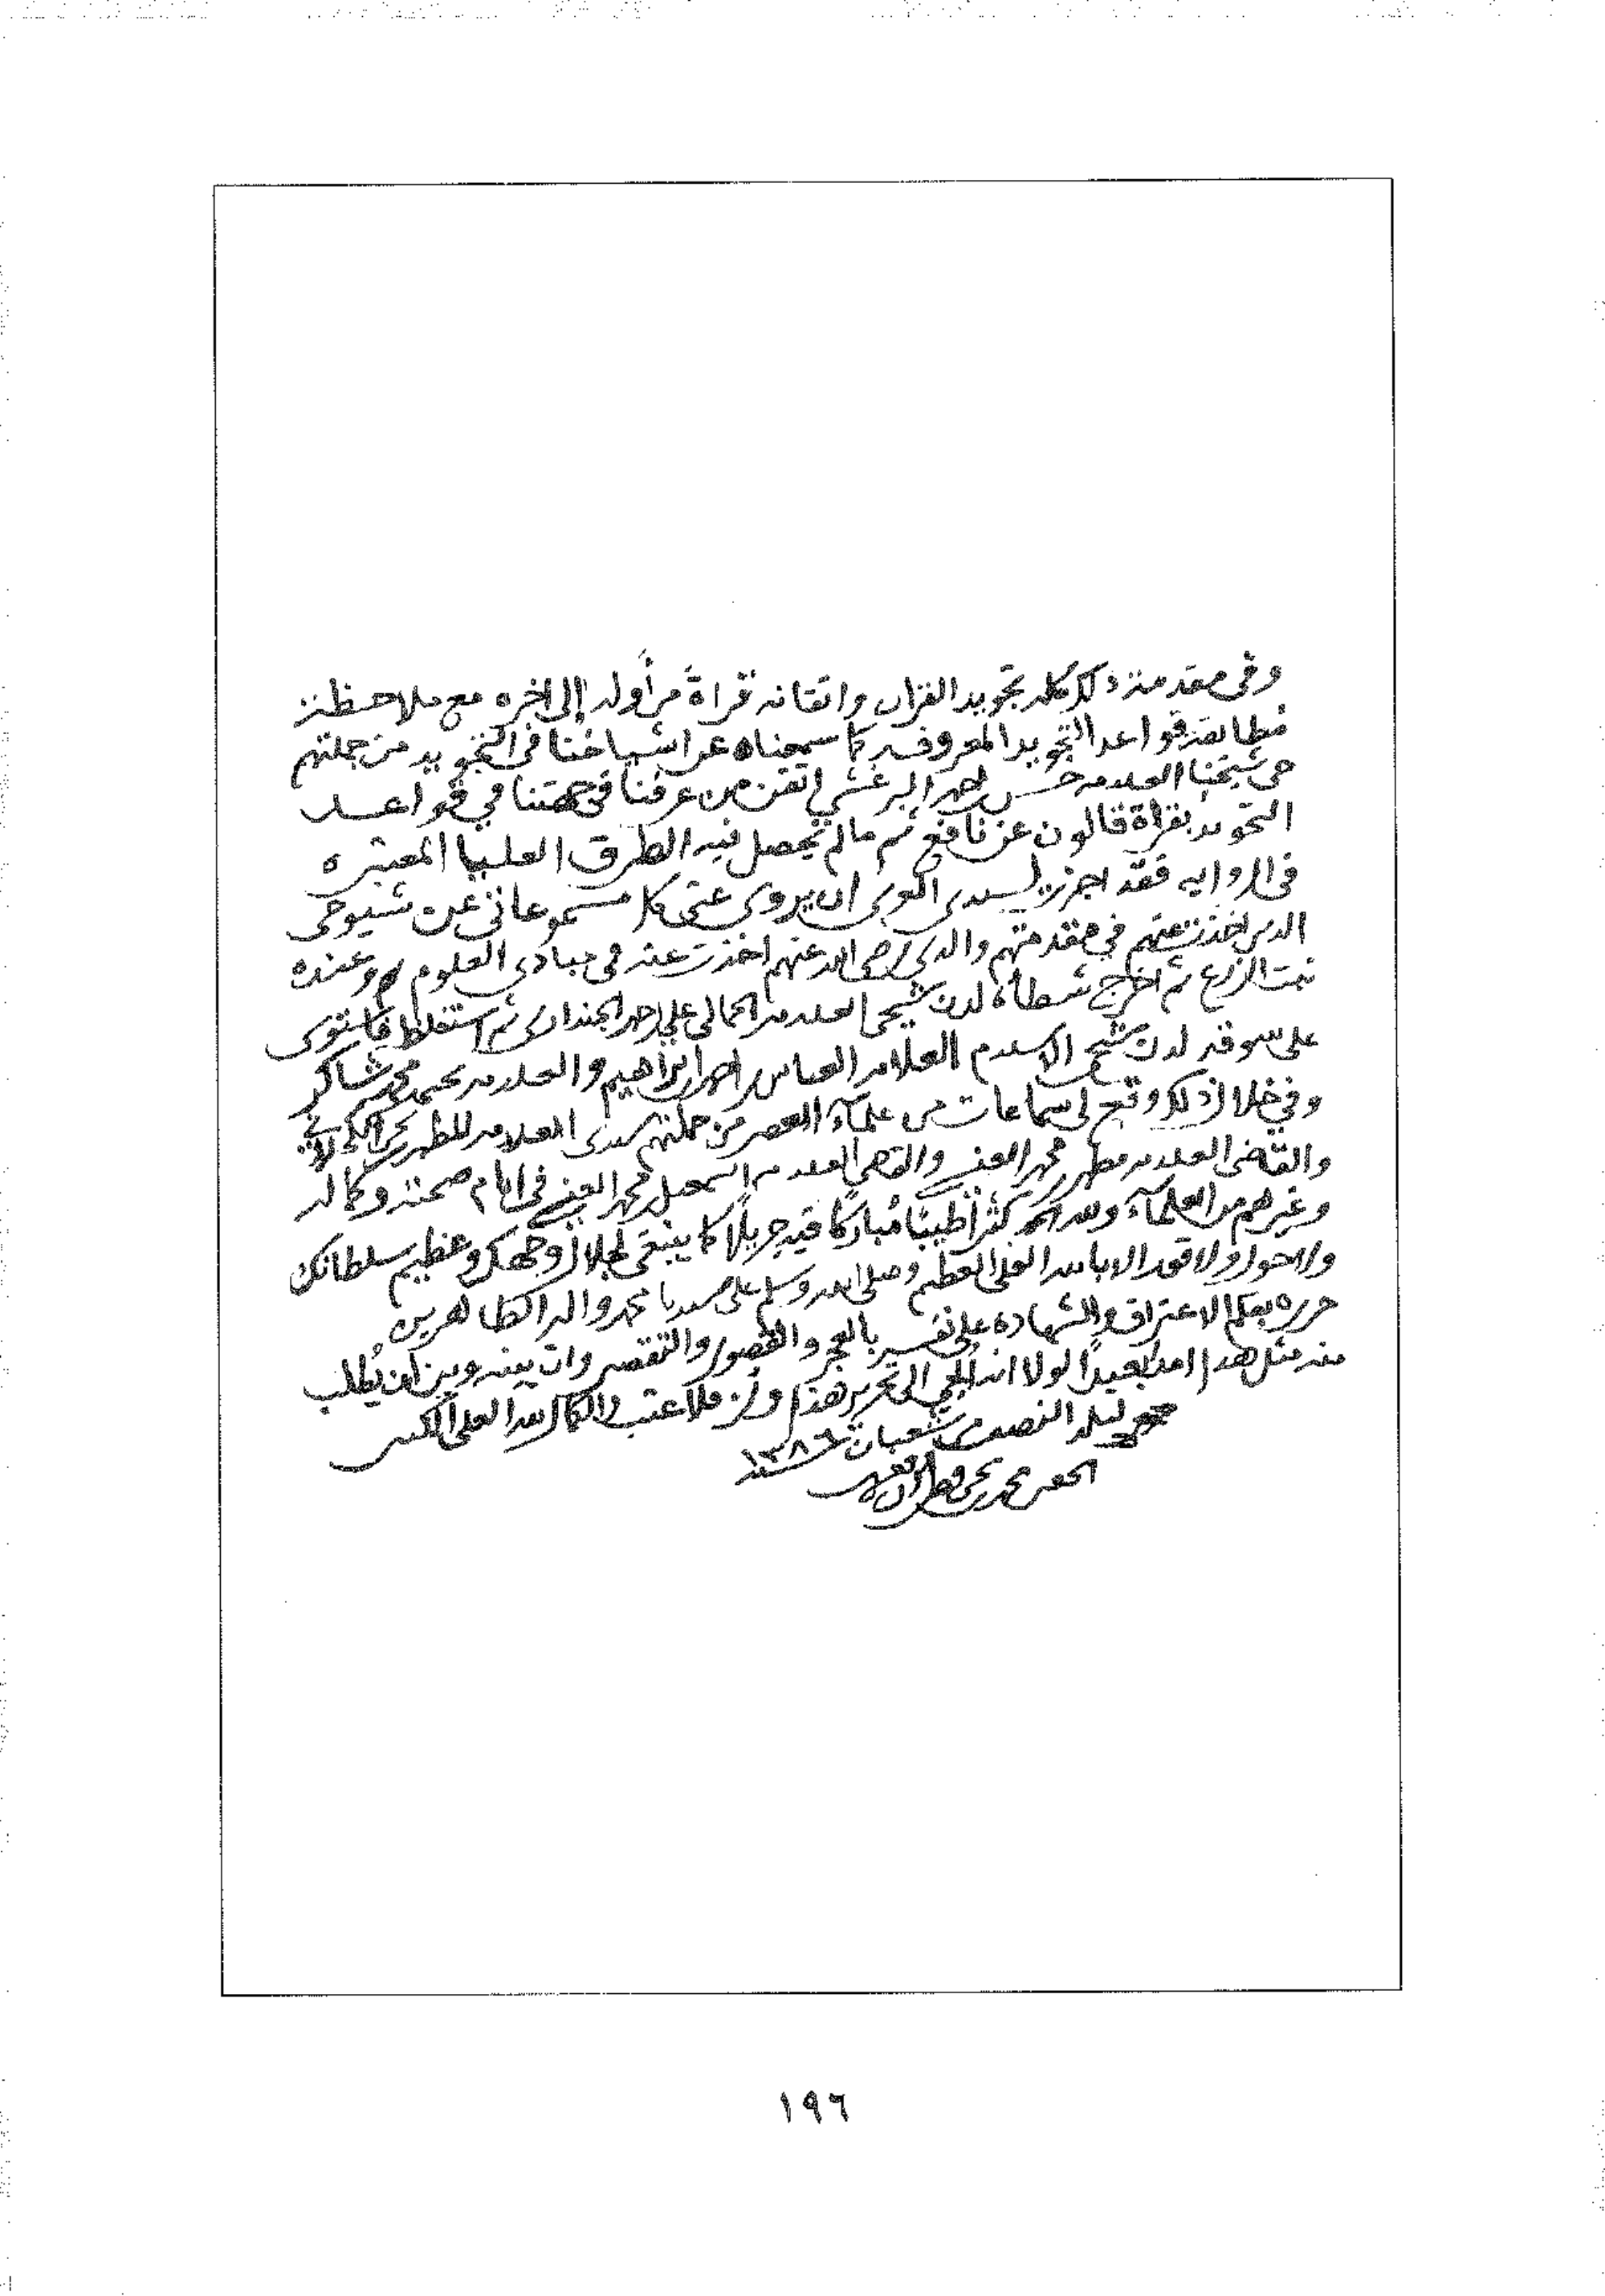 وفي مقدمة ذلك كله تجويد القرآن واتقانه قراةً من أوله إلى اخره مع ملاحظة
مطابقة قواعد التجويد المعروفه كما سمعناه عن اشياخنا في التجويد من جملتهم
شيخنا العلامه حسن احمد البرغشي اتقن من عرفنا في جهتنا في قواعد
التجويد بقراة قالون عن نافع ثم مالم يحصل فيه الطرق العليا المعتبره
في الروايه فقد اجزت لسيدي ان يروي عني كل مسموعاتي عن شيوخي
الذين اخذت عنهم في مقدمتهم والدي رضي الله عنهم اخذت عنه في مبادي العلوم وعنده
نبت الزرع ثم اخرج شطأه لدن شيخي العلامه الجمالي علي احمد ثم استغلظ فاستوى
على سوقه لدن شيخ الاسلام العلامه العباس احمد ابراهيم والعلامه محمد شاكر
وفي خلال ذلك وقع لي سماعات من علمآء العصر من جملتهم سيدي العلامه المطهر يحيى
والقاضي العلامه مطهر محمد والقاضي العلامه اسمعيل محمد في ايام صحته وكماله
وغيرهم من العلمآء ولله الحمد كثيراً طيبًا مُباركًا فيه جزيلًا كما ينبغي لجلال وجهك وعظيم سلطانك
ولا حول ولا قوة الا بالله العلي العظيم وصلى الله وسلم على سيدنا محمد واله الطاهرين
حرره بقلم الاعتراف والشهاده على نفسه بالعجز والقصور والتقصير وان بينه وبين ان يُطلب
منه مثل هذا امدًا بعيدًا لولا انه الجي الى تحرير هذا فلا عتب والكمال لله العلي الكبير
ليلة النصف من شعبان سنة ١٣٨٦
الحقير محمد يحيى
١٩٦